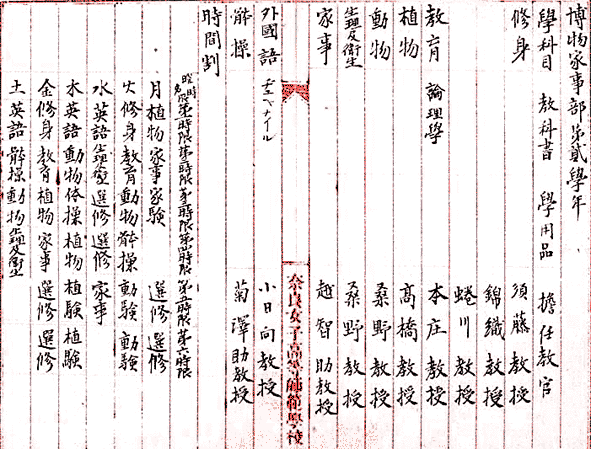 博物家事部第貳學年
學科目 教科書 學用品 擔任教官
修身 須藤教授
錦織教授
蜷川教授
教育 論理學 本庄教授
植物 高橋教授
動物 桑野教授
生理及衛生 桑野教授
家事 越智助教授
奈良女子高等師範學校
外國語 小日向教授
體操 菊澤助教授
時間割
第一時限 第二時限 第三時限 第四時限 第五時限 第六時限
月 植物 家事 家驗 選修 選修
火 修身 教育 動物 體操 動驗 動驗
水 英語 生理衛 選修 選修 家事
木 英語 動物 体操 植物 植驗 植驗
金 修身 教育 植物 家事 選修 選修
土 英語 體操 動物 生理及衛生